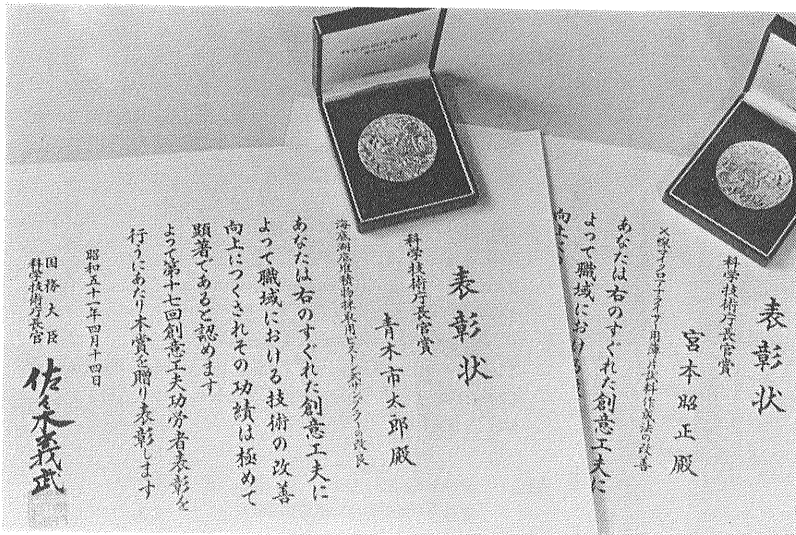 表彰状
科学技術庁長官賞
宮本昭正殿
X線マイクロアナライザー用薄片試料作成法の改善
あなたは右のすぐれた創意工夫に
よって職域における
向上
表彰状
科学技術庁長官賞
青木市太郎殿
海底湖底堆積物採取用ピストンサンプラーの改良
あなたは右のすぐれた創意工夫に
よって職域における技術の改善
向上につくされその功績は極めて
顕著であると認めます
よって第十七回創意工夫功労者表彰を
行うにあたり本賞を贈り表彰します
昭和五十一年四月十四日
国務大臣
科学技術庁長官
佐々木義武